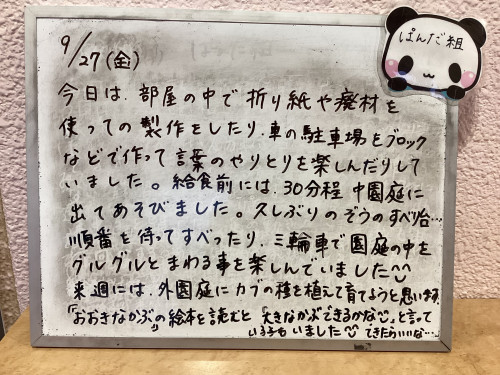 ぱんだ組
9/27(金)
今日は、部屋の中で折り紙や廃材を
使っての製作をしたり、車の駐車場をブロック
などで作って言葉のやりとりを楽しんだりして
いました。給食前には、30分程中園庭に
出てあそびました。久しぶりのぞうのすべり台…
順番を待ってすべったり、三輪車で園庭の中を
グルグルとまわる事を楽しんでいました^^
来週には、外園庭にカブの種を植えて育てようと思います。
「おおきなかぶ」の絵本を読むと「大きなかぶできるかな」と言って
いる子もいました できたらいいな…